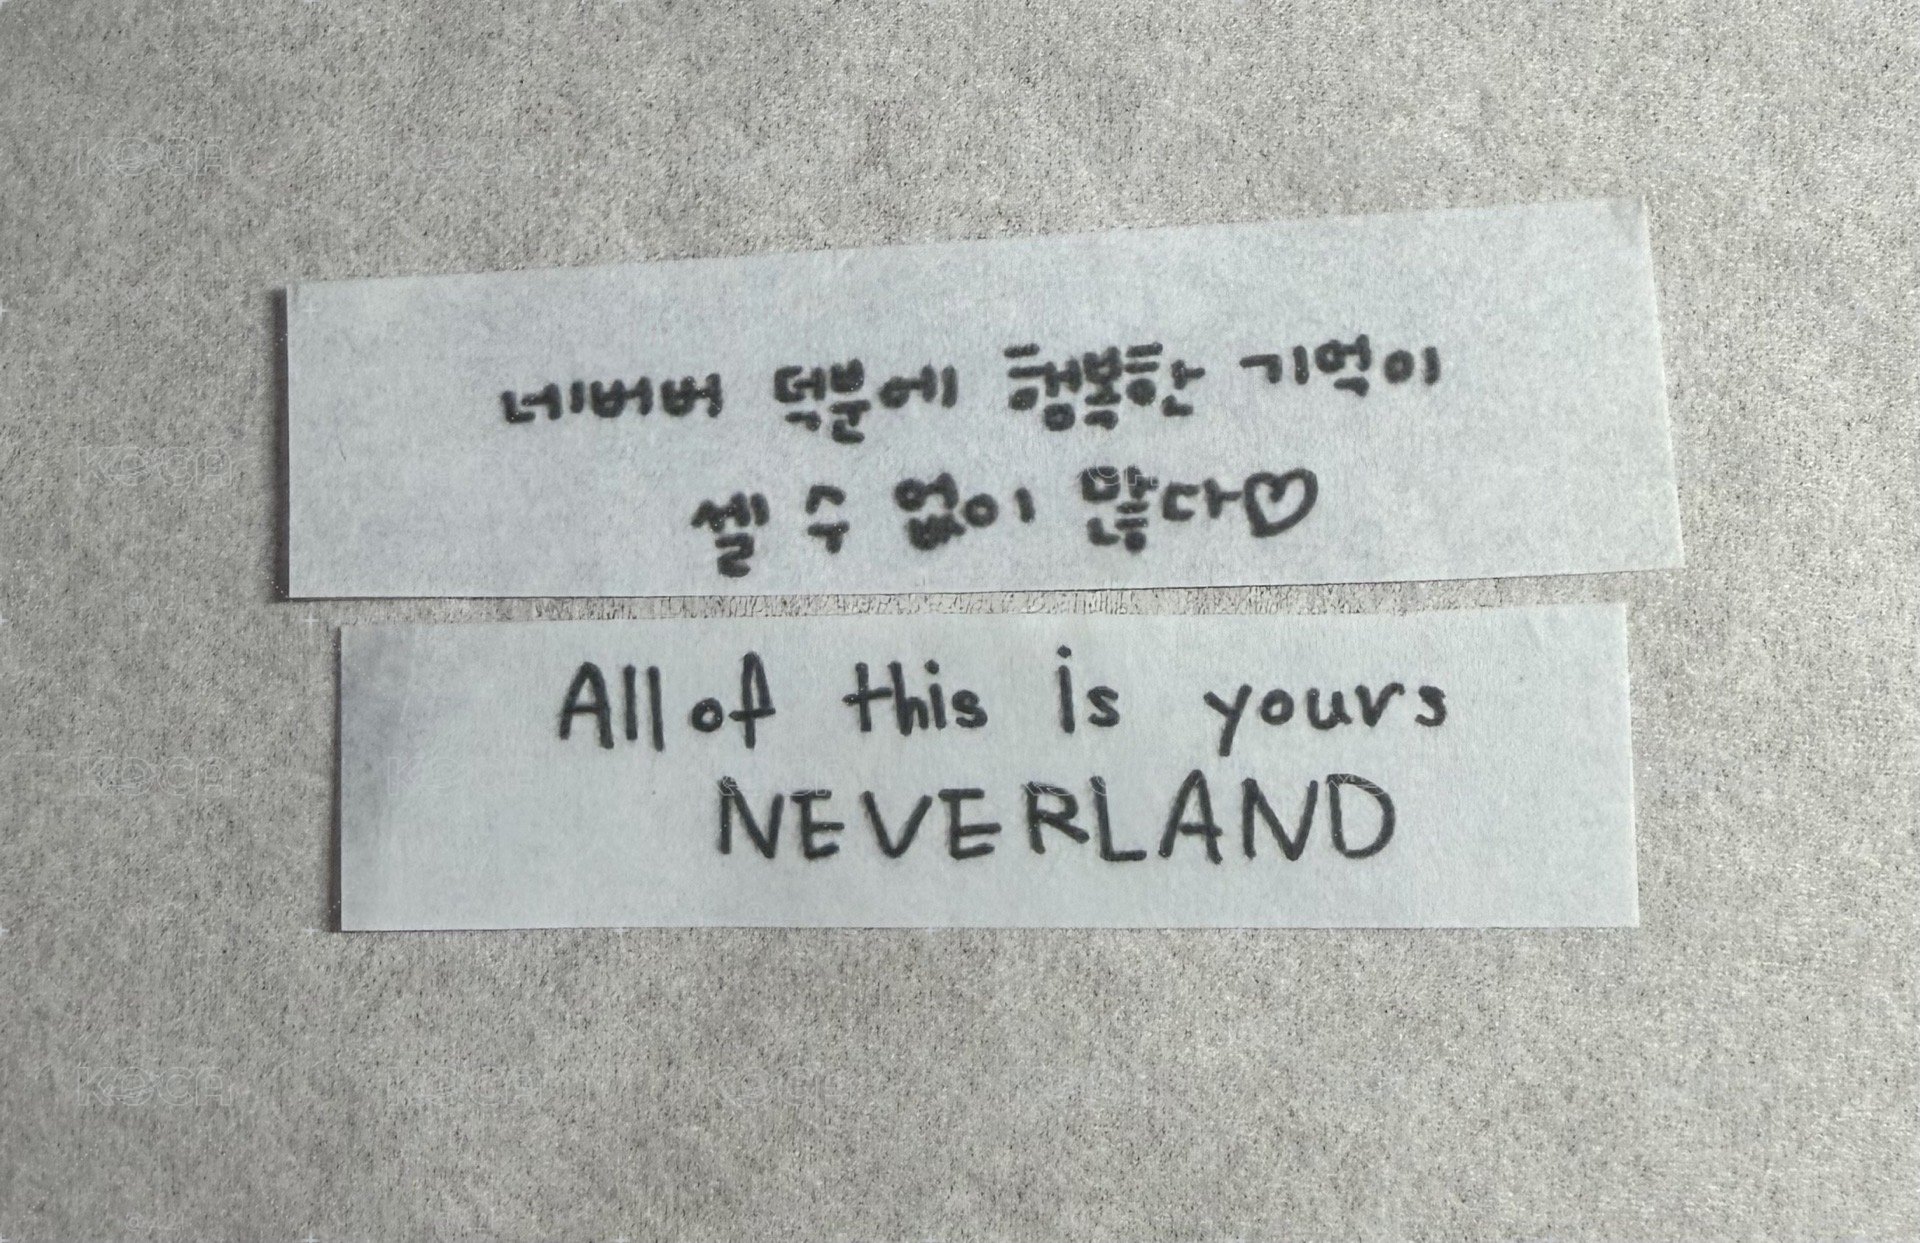 네버버 덕분에 행복한 기억이
셀 수 없이 많다♡
All of this is yours
NEVERLAND
KOCA